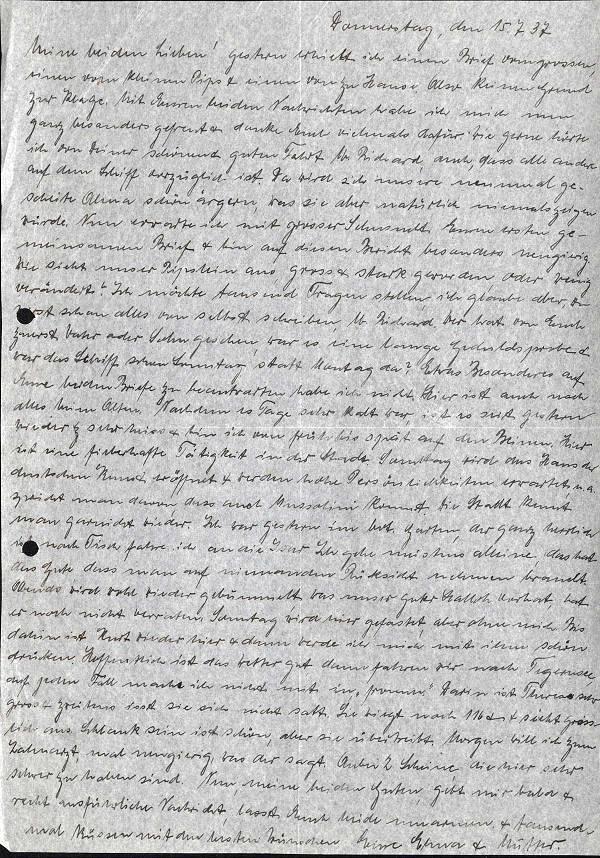 Donnerstag, den 15.7.37
Meine beiden Lieben! Gestern erhielt ich einen Brief vom grossen,
einen vom kleinen Pips & einen von zu Hause. Also keinen Grund
zur Klage. Mit Euren beiden Nachrichten habe ich mich nun
ganz besonders gefreut & danke Euch vielmals dafür. Wie gerne hörte
ich von Deiner schönen guten Fahrt lb. Richard, auch, dass alles andere
auf dem Schiff vorzüglich ist. Da wird sich unsere neunmal ge-
scheite Alma schön ärgern, was sie aber natürlich niemals zeigen
würde. Nun erwarte ich mit grosser Sehnsucht Euren ersten ge-
meinsamen Brief & bin auf diesen Bericht besonders neugierig
Wie sieht unser Pipslein aus, gross & stark geworden oder wenig
verändert? Ich möchte tausend Fragen stellen, ich glaube aber, Du
wirst schon alles von selbst schreiben lb. Richard. Wer hat von Euch
zuerst Vater oder Sohn gesehen, war es eine lange Geduldsprobe &
war das Schiff schon Sonntag statt Montag da? Etwas Besonderes auf
Eure beiden Briefe zu beantworten habe ich nicht. Hier ist auch noch
alles beim Alten. Nachdem es Tage sehr kalt war, ist es seit gestern
wieder sehr heiss & bin ich von früh bis spät auf den Beinen. Hier
ist eine fieberhafte Tätigkeit in der Stadt. Samstag wird das Haus der
deutschen Kunst eröffnet & werden hohe Persönlichkeiten erwartet, u.a.
spricht man davon dass auch Mussolini kommt. Die Stadt kennt
man garnicht wieder. Ich war gestern im bot. Garten, der ganz herrlich
ist, nach Tisch fahre ich an die Isar. Ich gehe meistens alleine, das hat
das Gute dass man auf niemanden Rücksicht nehmen braucht.
Abends wird wohl wieder gebummelt, was unser guter vorhat, hat
er noch nicht verraten. Samstag wird hier gefastet, aber ohne mich. Bis
dahin ist Kurt wieder hier & dann werde ich mich mit ihm schön
drücken. Hoffentlich ist das Wetter gut dann fahren wir nach Tegernsee,
auf jeden Fall mache ich nicht mit in „fromm“. Darin ist Therese sehr
gross & zweitens isst sie sich nicht satt. Sie wiegt noch 116 & sieht gräss-
lich aus. Schlank sein ist schön, aber sie übertreibt. Morgen will ich zum
Zahnarzt, mal neugierig, was der sagt. Anbei 2 Scheine, die hier sehr
schwer zu haben sind. Nun meine beiden Guten, gebt mir bald &
recht ausführliche Nachricht, lasst Euch beide umarmen, & tausend-
mal Küssen mit den besten Wünschen Eure & Mutter.